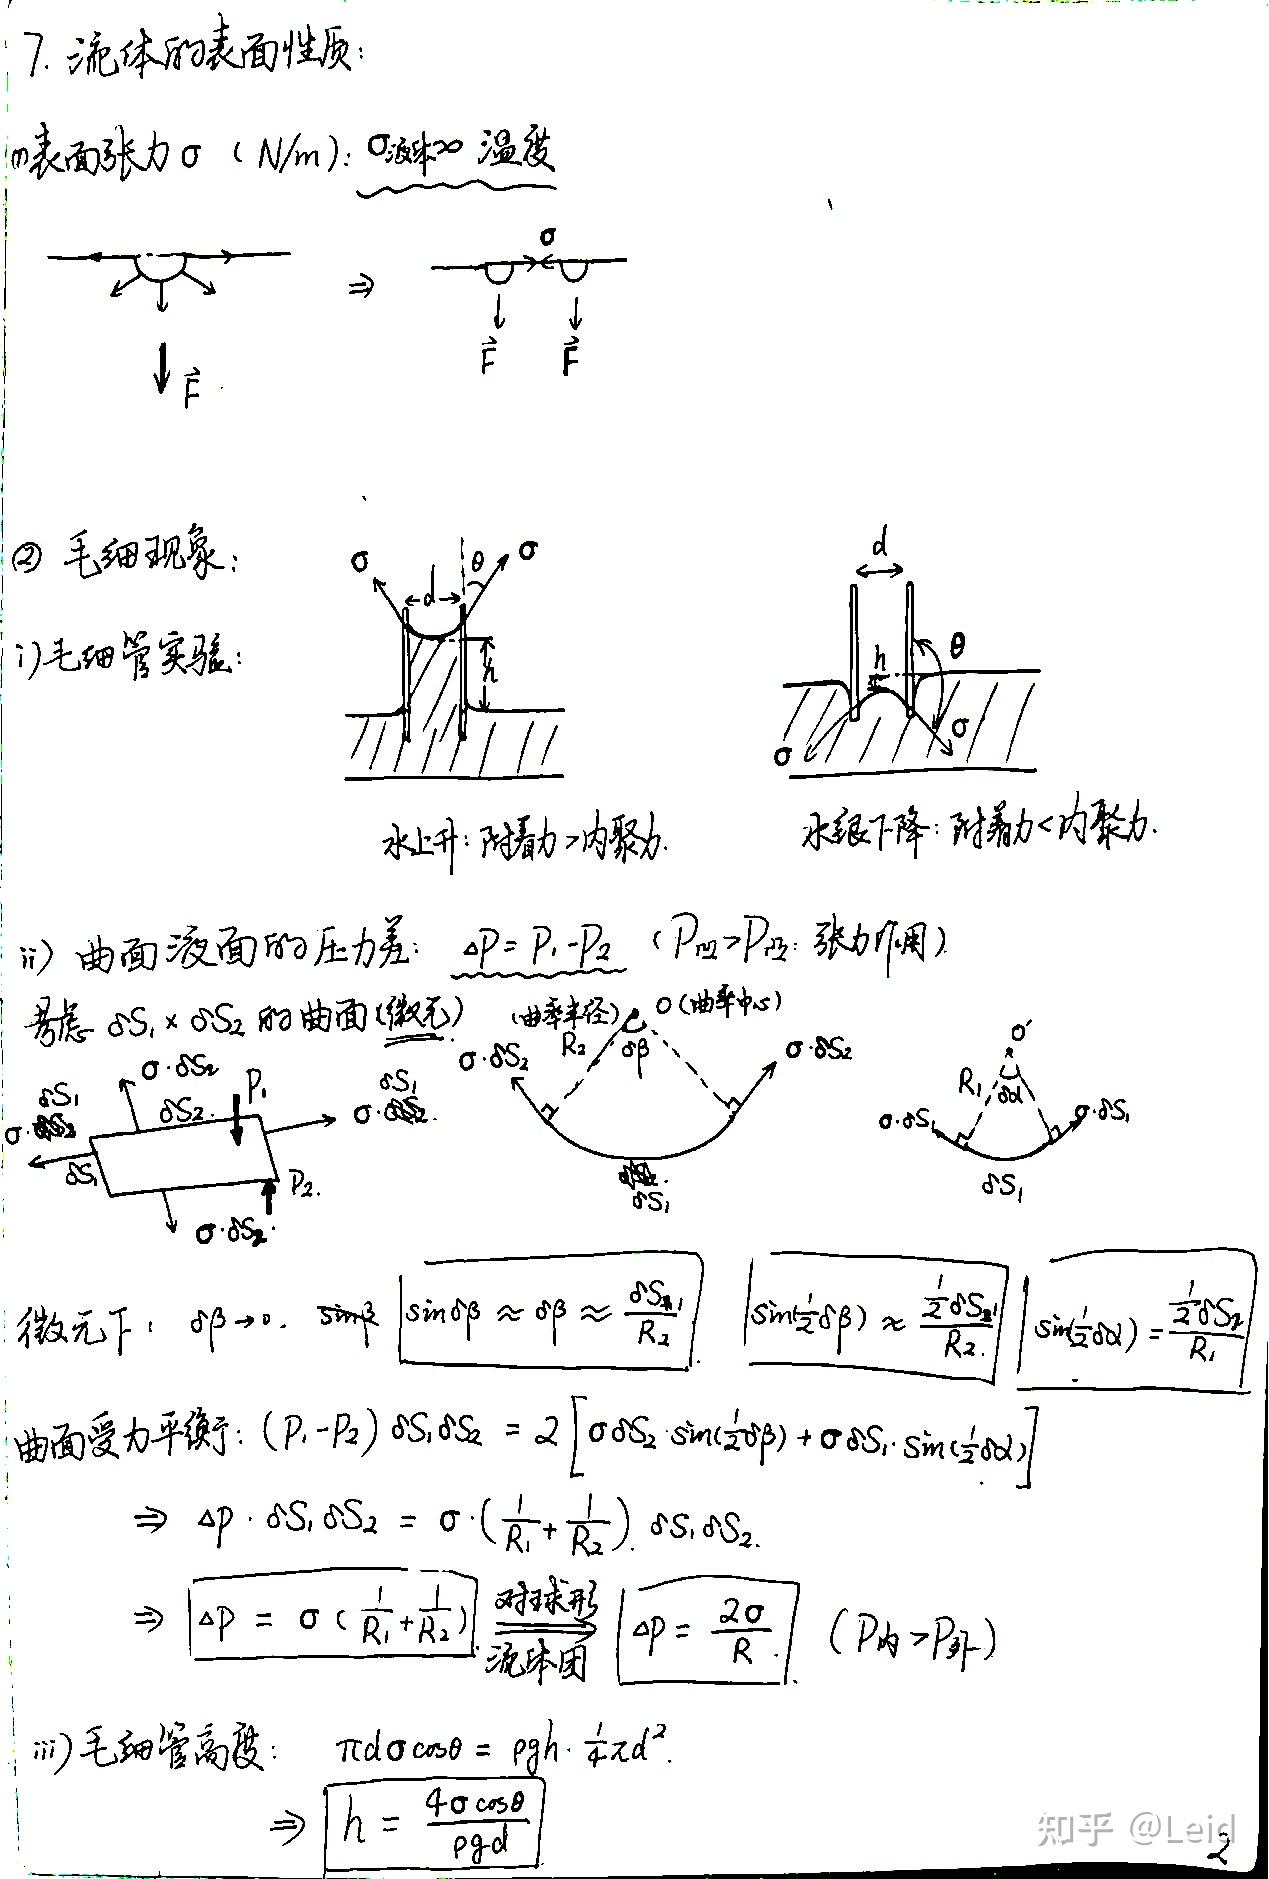 7. 流体的表面性质:
(1)表面张力σ (N/m): σ液体∝ 温度
σ
⇒
F⃗ F⃗ F⃗
② 毛细现象:
i) 毛细管实验:
σ θ σ
d
h
d
h θ
σ σ
水上升: 附着力>内聚力.
水银下降: 附着力<内聚力.
ii) 曲面液面的压力差: △P = P₁-P₂ (P凹>P凸: 张力作用)
考虑 δS₁×δS₂ 的曲面(微元)
σ·δS₂
δS₁ δS₂. P₁ δS₁
σ· σ·
δS₁ P₂.
σ·δS₂.
(曲率半径) O(曲率中心)
R₂ δβ
σ·δS₂ σ·δS₂
δS₁
O'
R₁ δα
σ·δS₁ σ·δS₁
δS₁
微元下: δβ→0. sinβ sinδβ ≈ δβ ≈ δS₁/R₂ sin(½δβ) ≈ ½δS₁/R₂. sin(½δα) = ½δS₂/R₁
曲面受力平衡: (P₁-P₂) δS₁δS₂ = 2[σδS₂·sin(½δβ)+σδS₁·sin(½δα)]
⇒ △P·δS₁δS₂ = σ·(1/R₁+1/R₂). δS₁δS₂.
⇒ △P = σ(1/R₁+1/R₂) 对球形流体团 △P = 2σ/R. (P内>P外)
iii) 毛细管高度: πdσcosθ = ρgh·¼πd².
⇒ h = 4σcosθ/ρgd
知乎 @Leid
2